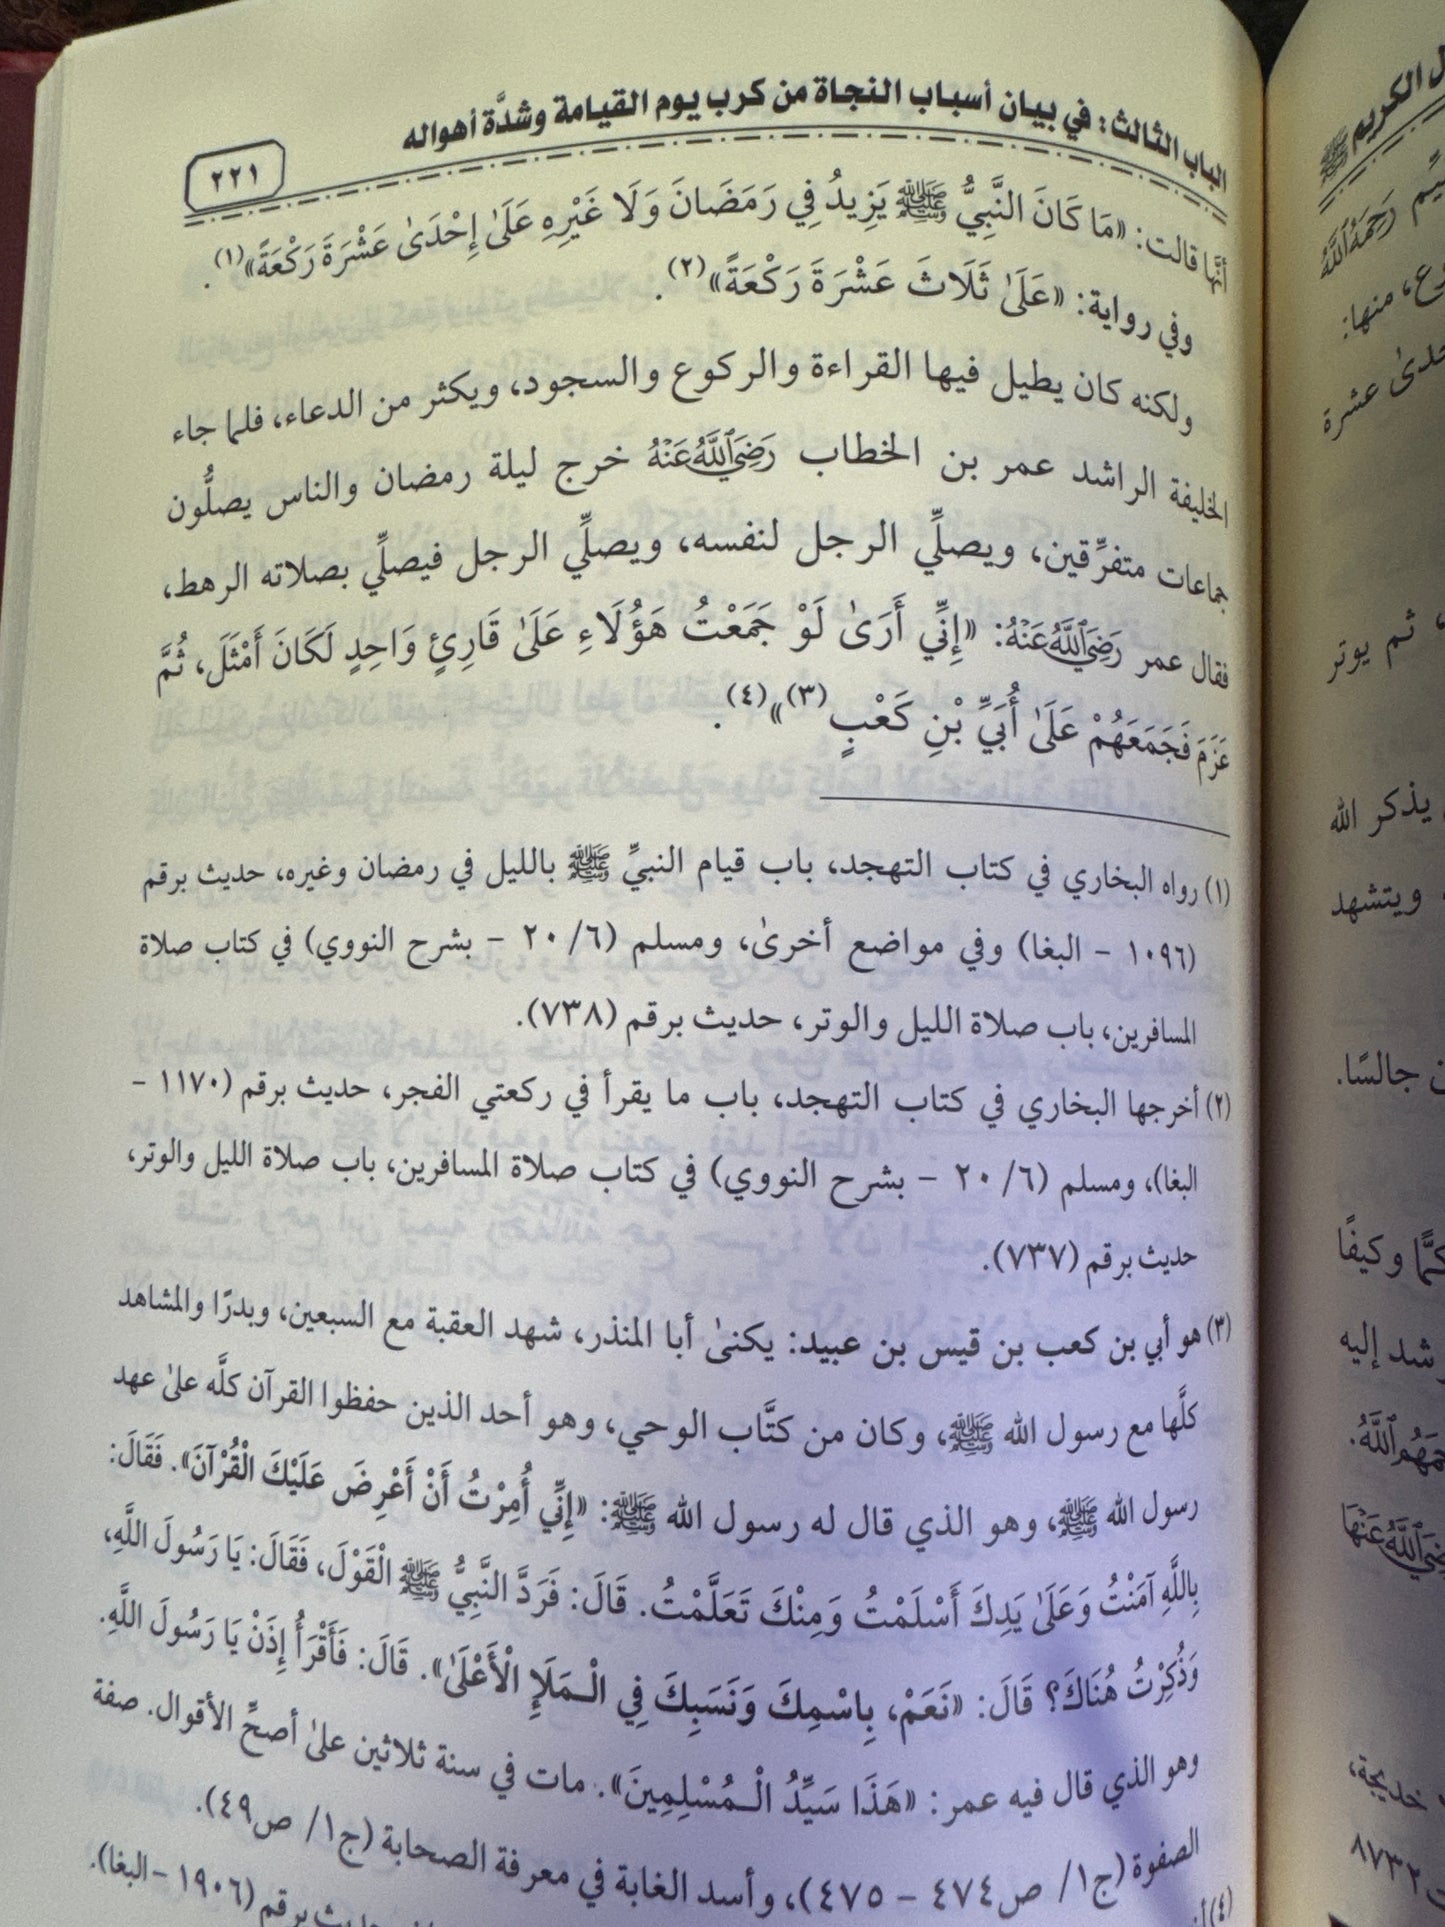 الباب الثالث: في بيان أسباب النجاة من كرب يوم القيامة وشدَّة أهواله
٢٢١
أنَّها قالت: «مَا كَانَ النَّبِيُّ ﷺ يَزِيدُ فِي رَمَضَانَ وَلَا غَيْرِهِ عَلَىٰ إِحْدَىٰ عَشْرَةَ رَكْعَةً»(١).
وفي رواية: «عَلَىٰ ثَلَاثَ عَشْرَةَ رَكْعَةً»(٢).
ولكنه كان يطيل فيها القراءة والركوع والسجود، ويكثر من الدعاء، فلما جاء
الخليفة الراشد عمر بن الخطاب رَضِيَ اللَّهُ عَنْهُ خرج ليلة رمضان والناس يصلُّون
جماعات متفرِّقين، ويصلِّي الرجل لنفسه، ويصلِّي الرجل فيصلِّي بصلاته الرهط،
فقال عمر رَضِيَ اللَّهُ عَنْهُ: «إِنِّي أَرَىٰ لَوْ جَمَعْتُ هَؤُلَاءِ عَلَىٰ قَارِئٍ وَاحِدٍ لَكَانَ أَمْثَلَ، ثُمَّ
عَزَمَ فَجَمَعَهُمْ عَلَىٰ أُبَيِّ بْنِ كَعْبٍ(٣)»(٤).
(١) رواه البخاري في كتاب التهجد، باب قيام النبيِّ ﷺ بالليل في رمضان وغيره، حديث برقم
(١٠٩٦ - البغا) وفي مواضع أخرىٰ، ومسلم (٦/ ٢٠ - بشرح النووي) في كتاب صلاة
المسافرين، باب صلاة الليل والوتر، حديث برقم (٧٣٨).
(٢) أخرجها البخاري في كتاب التهجد، باب ما يقرأ في ركعتي الفجر، حديث برقم (١١٧٠ -
البغا)، ومسلم (٦/ ٢٠ - بشرح النووي) في كتاب صلاة المسافرين، باب صلاة الليل والوتر،
حديث برقم (٧٣٧).
(٣) هو أبي بن كعب بن قيس بن عبيد: يكنىٰ أبا المنذر، شهد العقبة مع السبعين، وبدرًا والمشاهد
كلَّها مع رسول الله ﷺ، وكان من كتَّاب الوحي، وهو أحد الذين حفظوا القرآن كلَّه علىٰ عهد
رسول الله ﷺ، وهو الذي قال له رسول الله ﷺ: «إِنِّي أُمِرْتُ أَنْ أَعْرِضَ عَلَيْكَ الْقُرْآنَ». فَقَالَ:
بِاللَّهِ آمَنْتُ وَعَلَىٰ يَدِكَ أَسْلَمْتُ وَمِنْكَ تَعَلَّمْتُ. قَالَ: فَرَدَّ النَّبِيُّ ﷺ الْقَوْلَ، فَقَالَ: يَا رَسُولَ اللَّهِ،
وَذُكِرْتُ هُنَاكَ؟ قَالَ: «نَعَمْ، بِاسْمِكَ وَنَسَبِكَ فِي الْـمَلَإِ الْأَعْلَىٰ». قَالَ: فَأَقْرَأُ إِذَنْ يَا رَسُولَ اللَّهِ.
وهو الذي قال فيه عمر: «هَذَا سَيِّدُ الْـمُسْلِمِينَ». مات في سنة ثلاثين علىٰ أصحِّ الأقوال. صفة
الصفوة (ج١/ ص٤٧٤ - ٤٧٥)، وأسد الغابة في معرفة الصحابة (ج١/ ص٤٩).
(٤) حديث برقم (١٩٠٦ - البغا).
ل الكريم ﷺ
رَحِمَهُ اللَّهُ
منها:
عشرة
ثم يوتر
يذكر الله
ويتشهد
جالسًا.
وكيفًا
إليه
خديجة،
٨٧٣٢